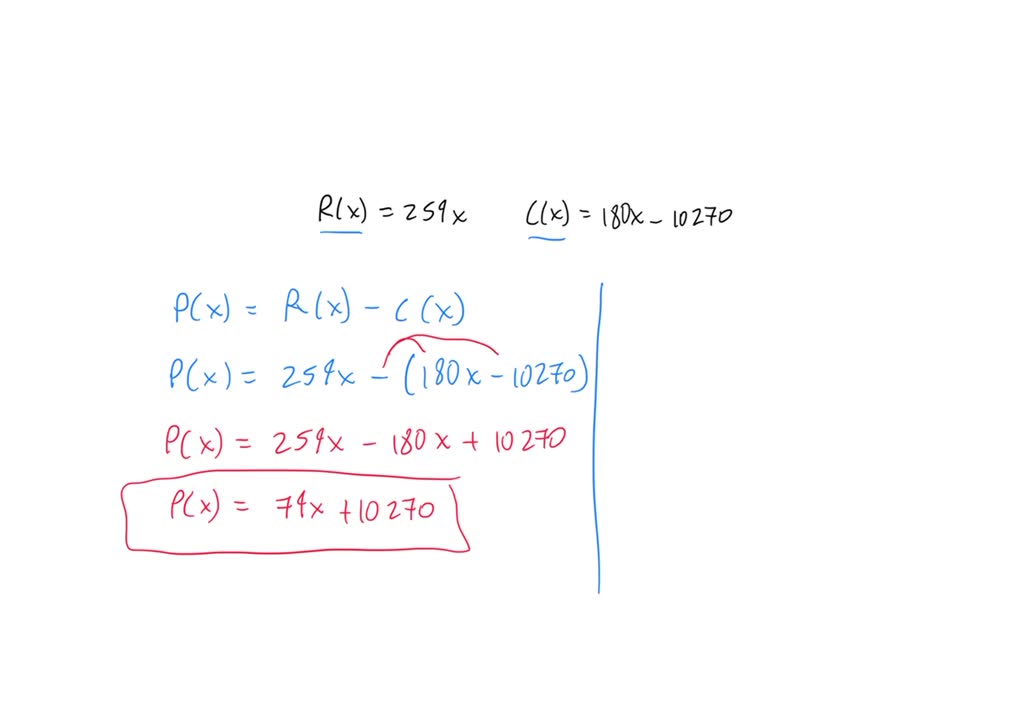 R(x) = 259x C(x) = 180x - 10270
P(x) = R(x) - C(x)
P(x) = 259x - (180x - 10270)
P(x) = 259x - 180x + 10270
P(x) = 79x + 10270